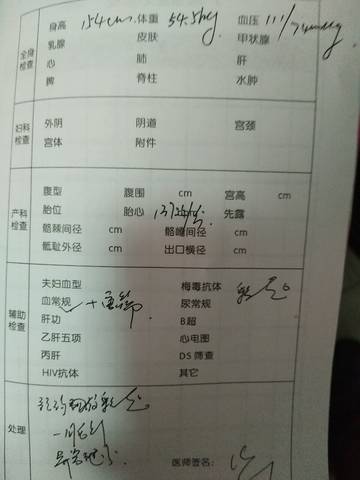 身高 154cm 体重 54.5kg 血压 111/74mmHg
乳腺 皮肤 甲状腺
全身检查
心 肺 肝
脾 脊柱 水肿
妇科检查
外阴 阴道 宫颈
宫体 附件
腹型 腹围 cm 宫高 cm
产科检查
胎位 胎心 先露
髂棘间径 cm 髂嵴间径 cm
骶耻外径 cm 出口横径 cm
夫妇血型 梅毒抗体
血常规 尿常规
辅助检查
肝功 B超
乙肝五项 心电图
丙肝 DS筛查
HIV抗体 其它
处理
一周后
医师签名: